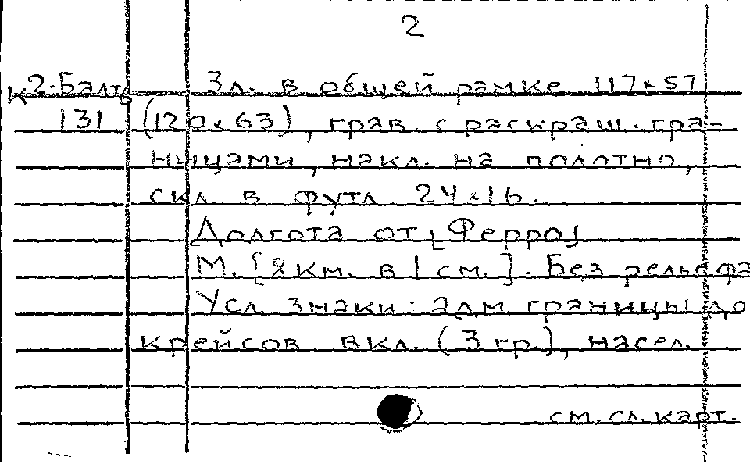 2
К2-Балт 3л. в общей рамке 117×57
131 (120×63), грав. с раскраш. гра-
ницами, накл. на полотно,
скл. в футл. 24×16.
Долгота от [Ферро]
М. [8 км. в 1 см.]. Без рельефа
Усл. знаки: адм границы до
крейсов вкл. (3 гр.), насел.
см. сл. карт.